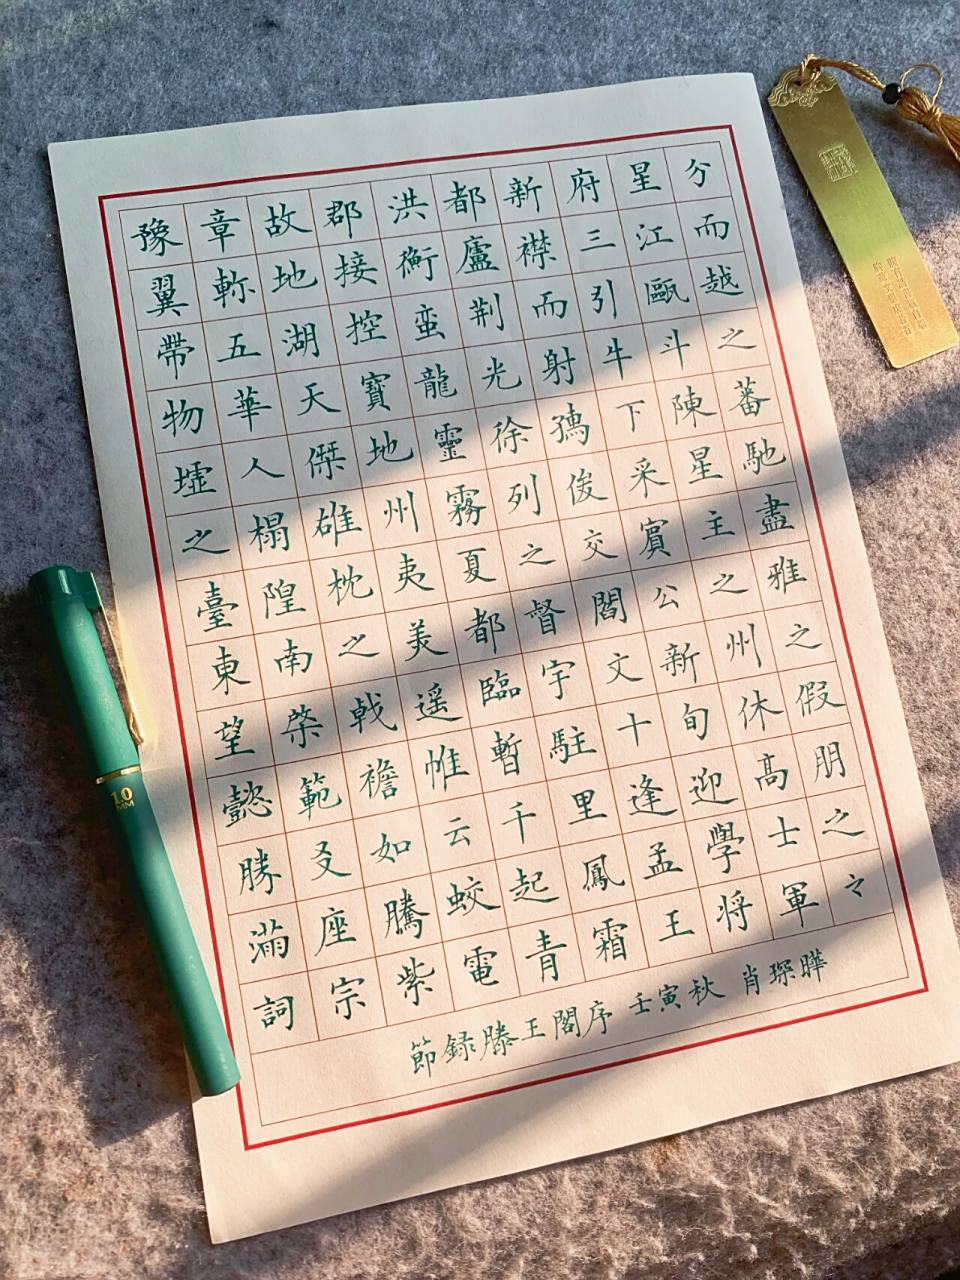 豫章故郡洪都新府星分
翼軫地接衡廬襟三江而
帶五湖控蛮荆而引甌越
物華天寶龍光射牛斗之
墟人傑地靈徐孺下陳蕃
之榻雄州霧列俊采星馳
臺隍枕夷夏之交賓主盡
東南之美都督閻公之雅
望棨戟遥臨宇文新州之
懿範襜帷暫駐十旬休假
勝友如云千里逢迎高朋
滿座騰蛟起鳳孟學士之
詞宗紫電青霜王将軍之
節録滕王閣序 壬寅秋 肖琛曄
1.0
MM